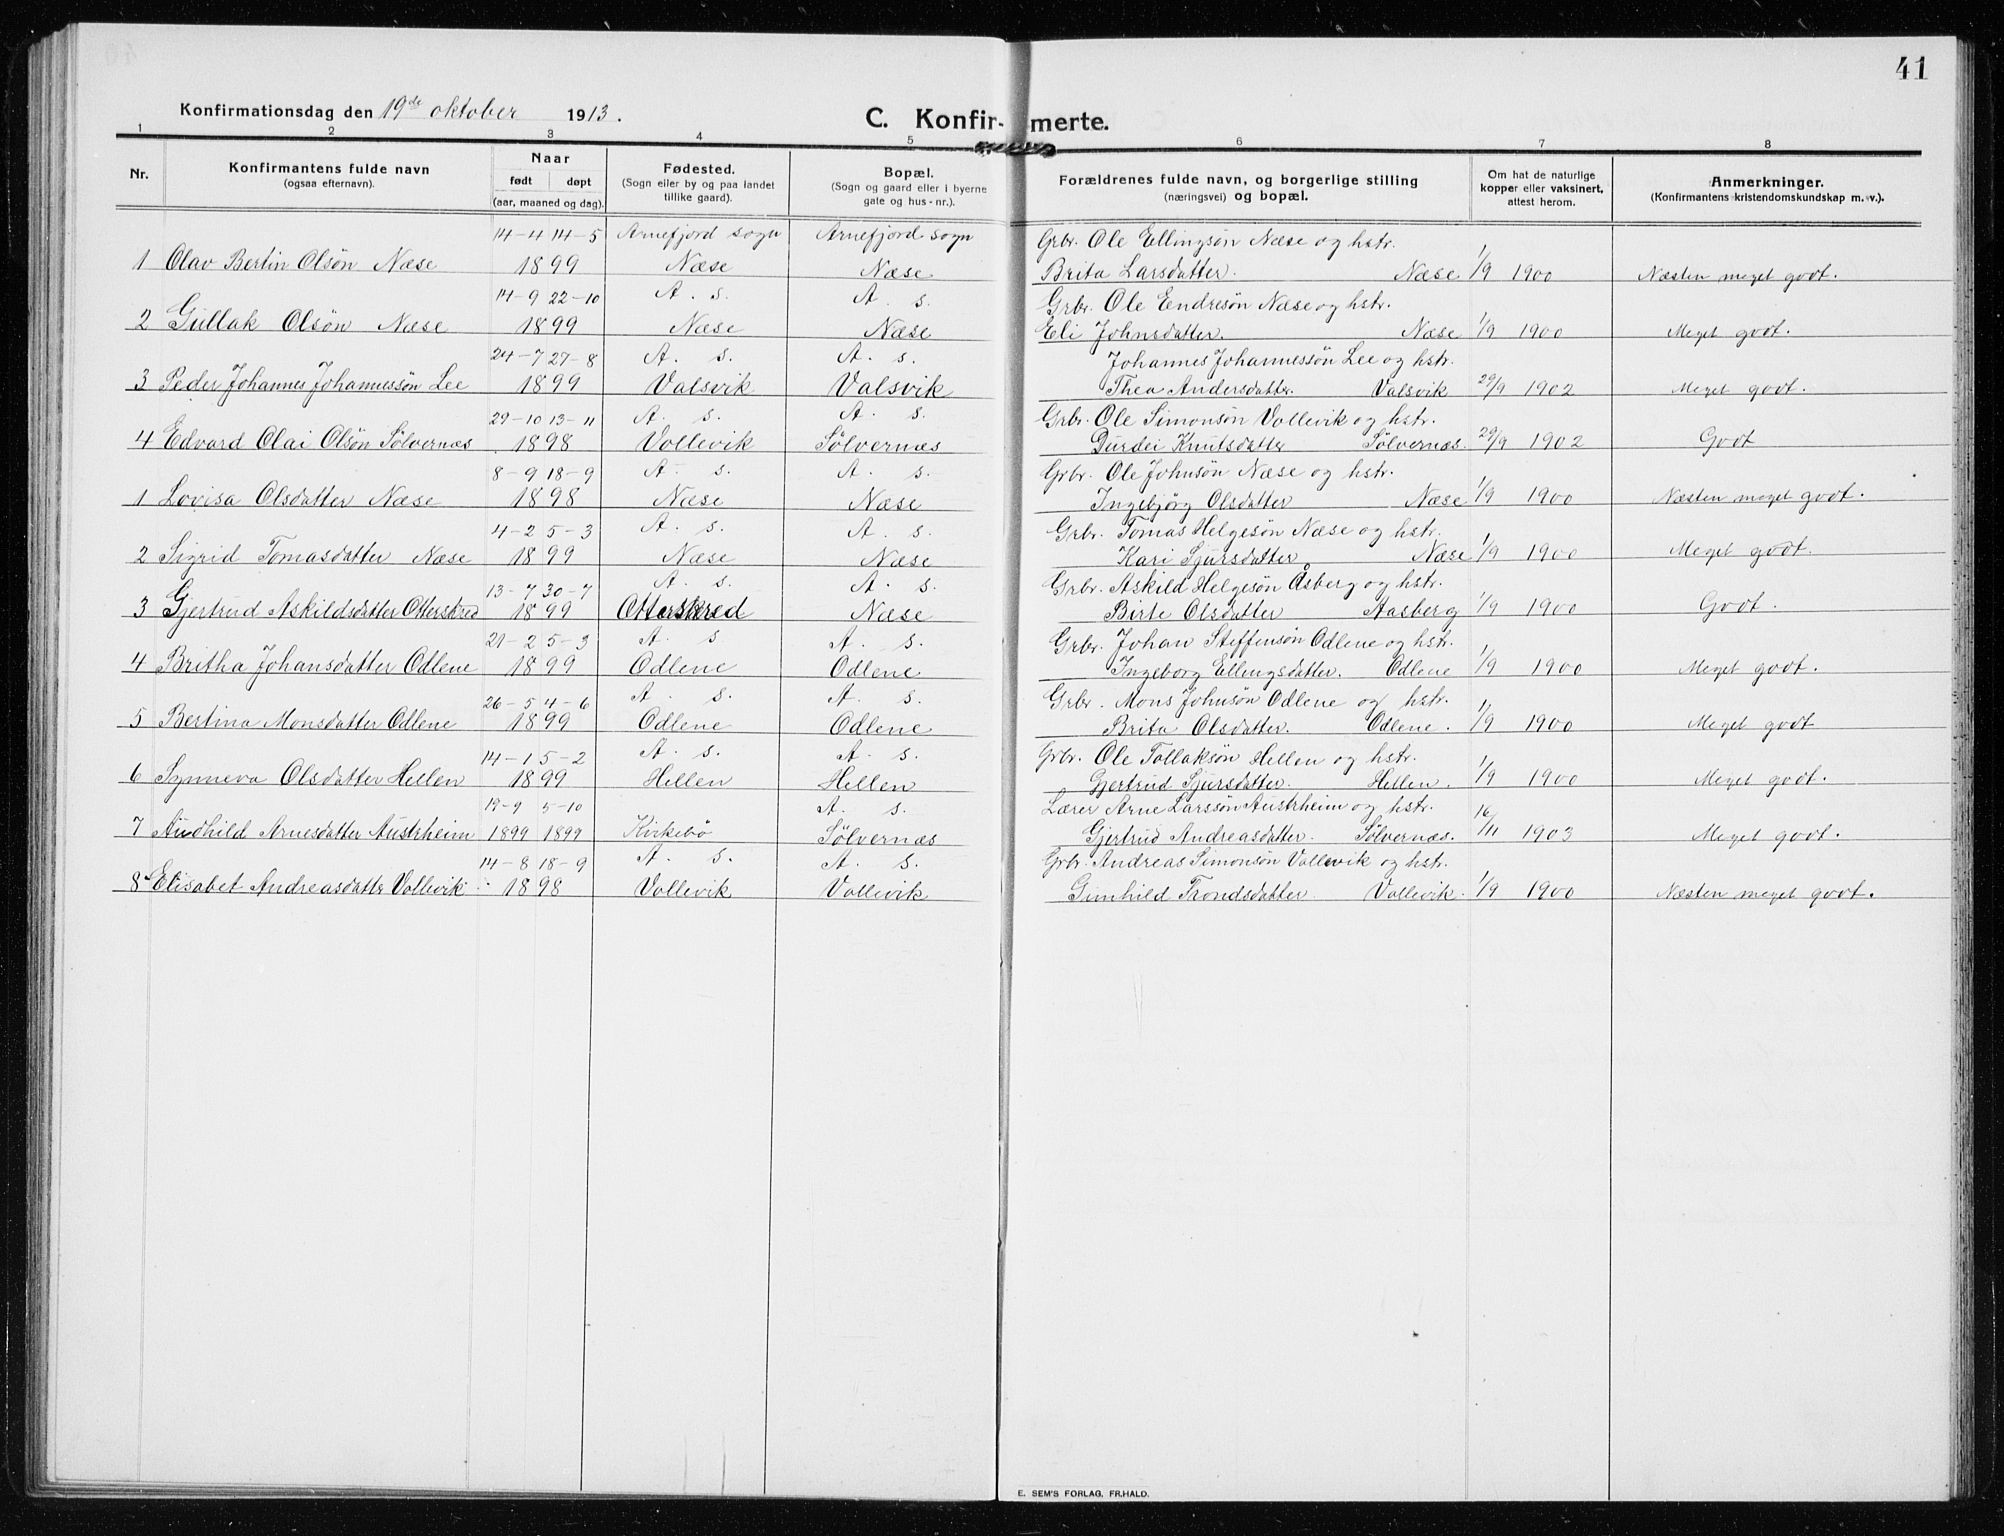 41
Konfirmationsdag den 19de oktober 1913.
C. Konfir- merte.
1 2 3 4 5 6 7 8
Nr. Konfirmantens fulde navn (ogsaa efternavn). Naar født døpt (aar, maaned og dag). Fødested. (Sogn eller by og paa landet tillike gaard). Bopæl. (Sogn og gaard eller i byerne gate og hus-nr.). Forældrenes fulde navn, og borgerlige stilling (næringsvei) og bopæl. Om hat de naturlige kopper eller vaksinert, attest herom. Anmerkninger. (Konfirmantens kristendomskundskap m. v.).
14-4 14-5 Arnefjord sogn Arnefjord sogn Grbr. Ole Ellingsøn Næse og hstr.
1 Olav Bertin Olsøn Næse 1899 Næse Næse Brita Larsdatter. Næse 1/9 1900 Næsten meget godt.
14-9 22-10 A. s. A. s. Grbr. Ole Endresøn Næse og hstr.
2 Gullak Olsøn Næse 1899 Næse Næse Eli Johnsdatter. Næse 1/9 1900 Meget godt.
24-7 27-8 A. s. A. s. Johannes Johannessøn Lee og hstr.
3 Peder Johannes Johannessøn Lee 1899 Valsvik Valsvik Thea Andersdatter. Valsvik 29/9 1902 Meget godt.
29-10 13-11 A. s. A. s. Grbr. Ole Simonsøn Vollevik og hstr.
4 Edvard Olai Olsøn Sølvernæs 1898 Vollevik Sølvernæs Durdei Knutsdatter Sølvernæs. 29/9 1902 Godt
8-9 18-9 A. s. A. s. Grbr. Ole Johnsøn Næse og hstr.
1 Lovisa Olsdatter Næse 1898 Næse Næse Ingebjørg Olsdatter Næse 1/9 1900 Næsten meget godt.
4-2 5-3 A. s. A. s. Grbr. Tomas Helgesøn Næse og hstr.
2 Sigrid Tomasdatter Næse 1899 Næse Næse Kari Sjursdatter Næse 1/9 1900 Meget godt.
13-7 30-7 A. s. A. s. Grbr. Askild Helgesøn Åsberg og hstr.
3 Gjertrud Askildsdatter Otterskred 1899 Otterskred Næse Birte Olsdatter Aasberg 1/9 1900 Godt.
21-2 5-3 A. s A. s. Grbr. Johan Steffensøn Odlene og hstr.
4 Britha Johansdatter Odlene 1899 Odlene Odlene Ingeborg Ellingsdatter. Odlene 1/9 1900 Meget godt.
26-5 4-6 A. s. A. s. Grbr. Mons Johnsøn Odlene og hstr.
5 Bertina Monsdatter Odlene 1899 Odlene Odlene Brita Olsdatter. Odlene. 1/9 1900 Meget godt
14-1 5-2 A. s. A. s. Grbr. Ole Tollaksøn Hellen og hstr.
6 Synneva Olsdatter Hellen 1899 Hellen Hellen Gjertrud Sjursdatter. Hellen. 1/9 1900 Meget godt.
19-9 5-10 A. s. Lærer Arne Larssøn Austrheim og hstr.
7 Audhild Arnesdatter Austrheim 1899 1899 Kirkebø Sølvernæs Gjertrud Andreasdatter. Sølvernæs. 16/11 1903 Meget godt.
14-8 18-9 A. s. A. s. Grbr. Andreas Simonsøn Vollevik og hstr.
8 Elisabet Andreasdatter Vollevik 1898 Vollevik Vollevik Gunhild Trondsdatter Vollevik. 1/9 1900 Næsten meget godt.
E. SEM'S FORLAG, FR.HALD.